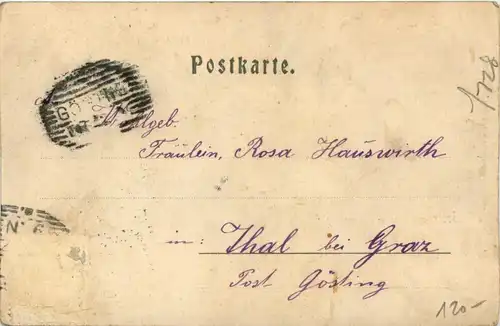 Postkarte.
1728
Wohlgeb.
Fräulein, Rosa Hauswirth
in: Thal bei Graz
Post Gösting
120-